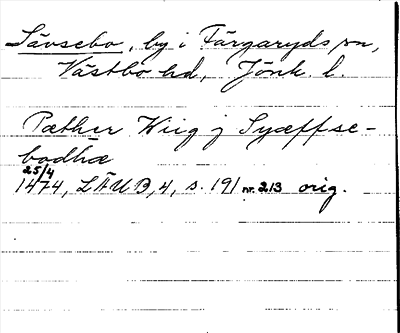 Sävsebo, by i Färgaryds sn,
Västbo hd, Jönk. l.
Pæther Wiig j Syæffse-
bodhæ
25/4
1474, LÄUB, 4, s. 191 nr. 213 orig.